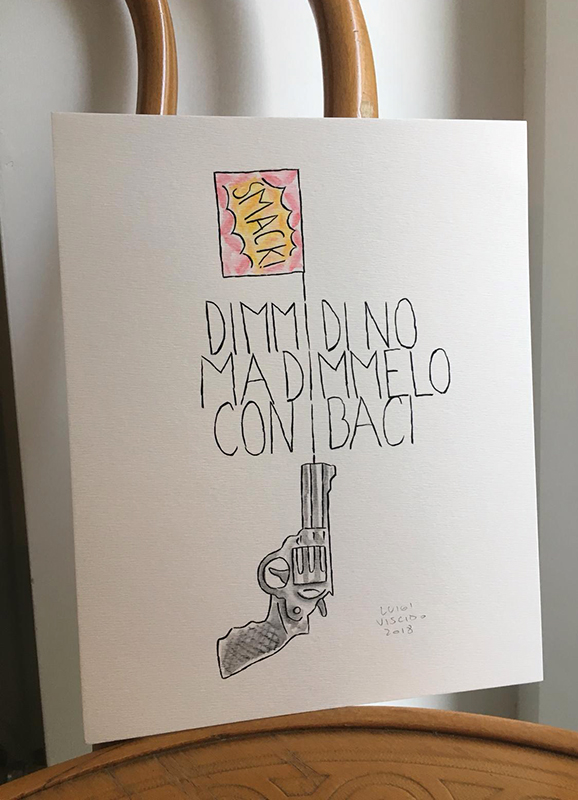 SMACK!
DIMMI DI NO
MA DIMMELO
CON I BACI
LUIGI
VISCIDO
2018